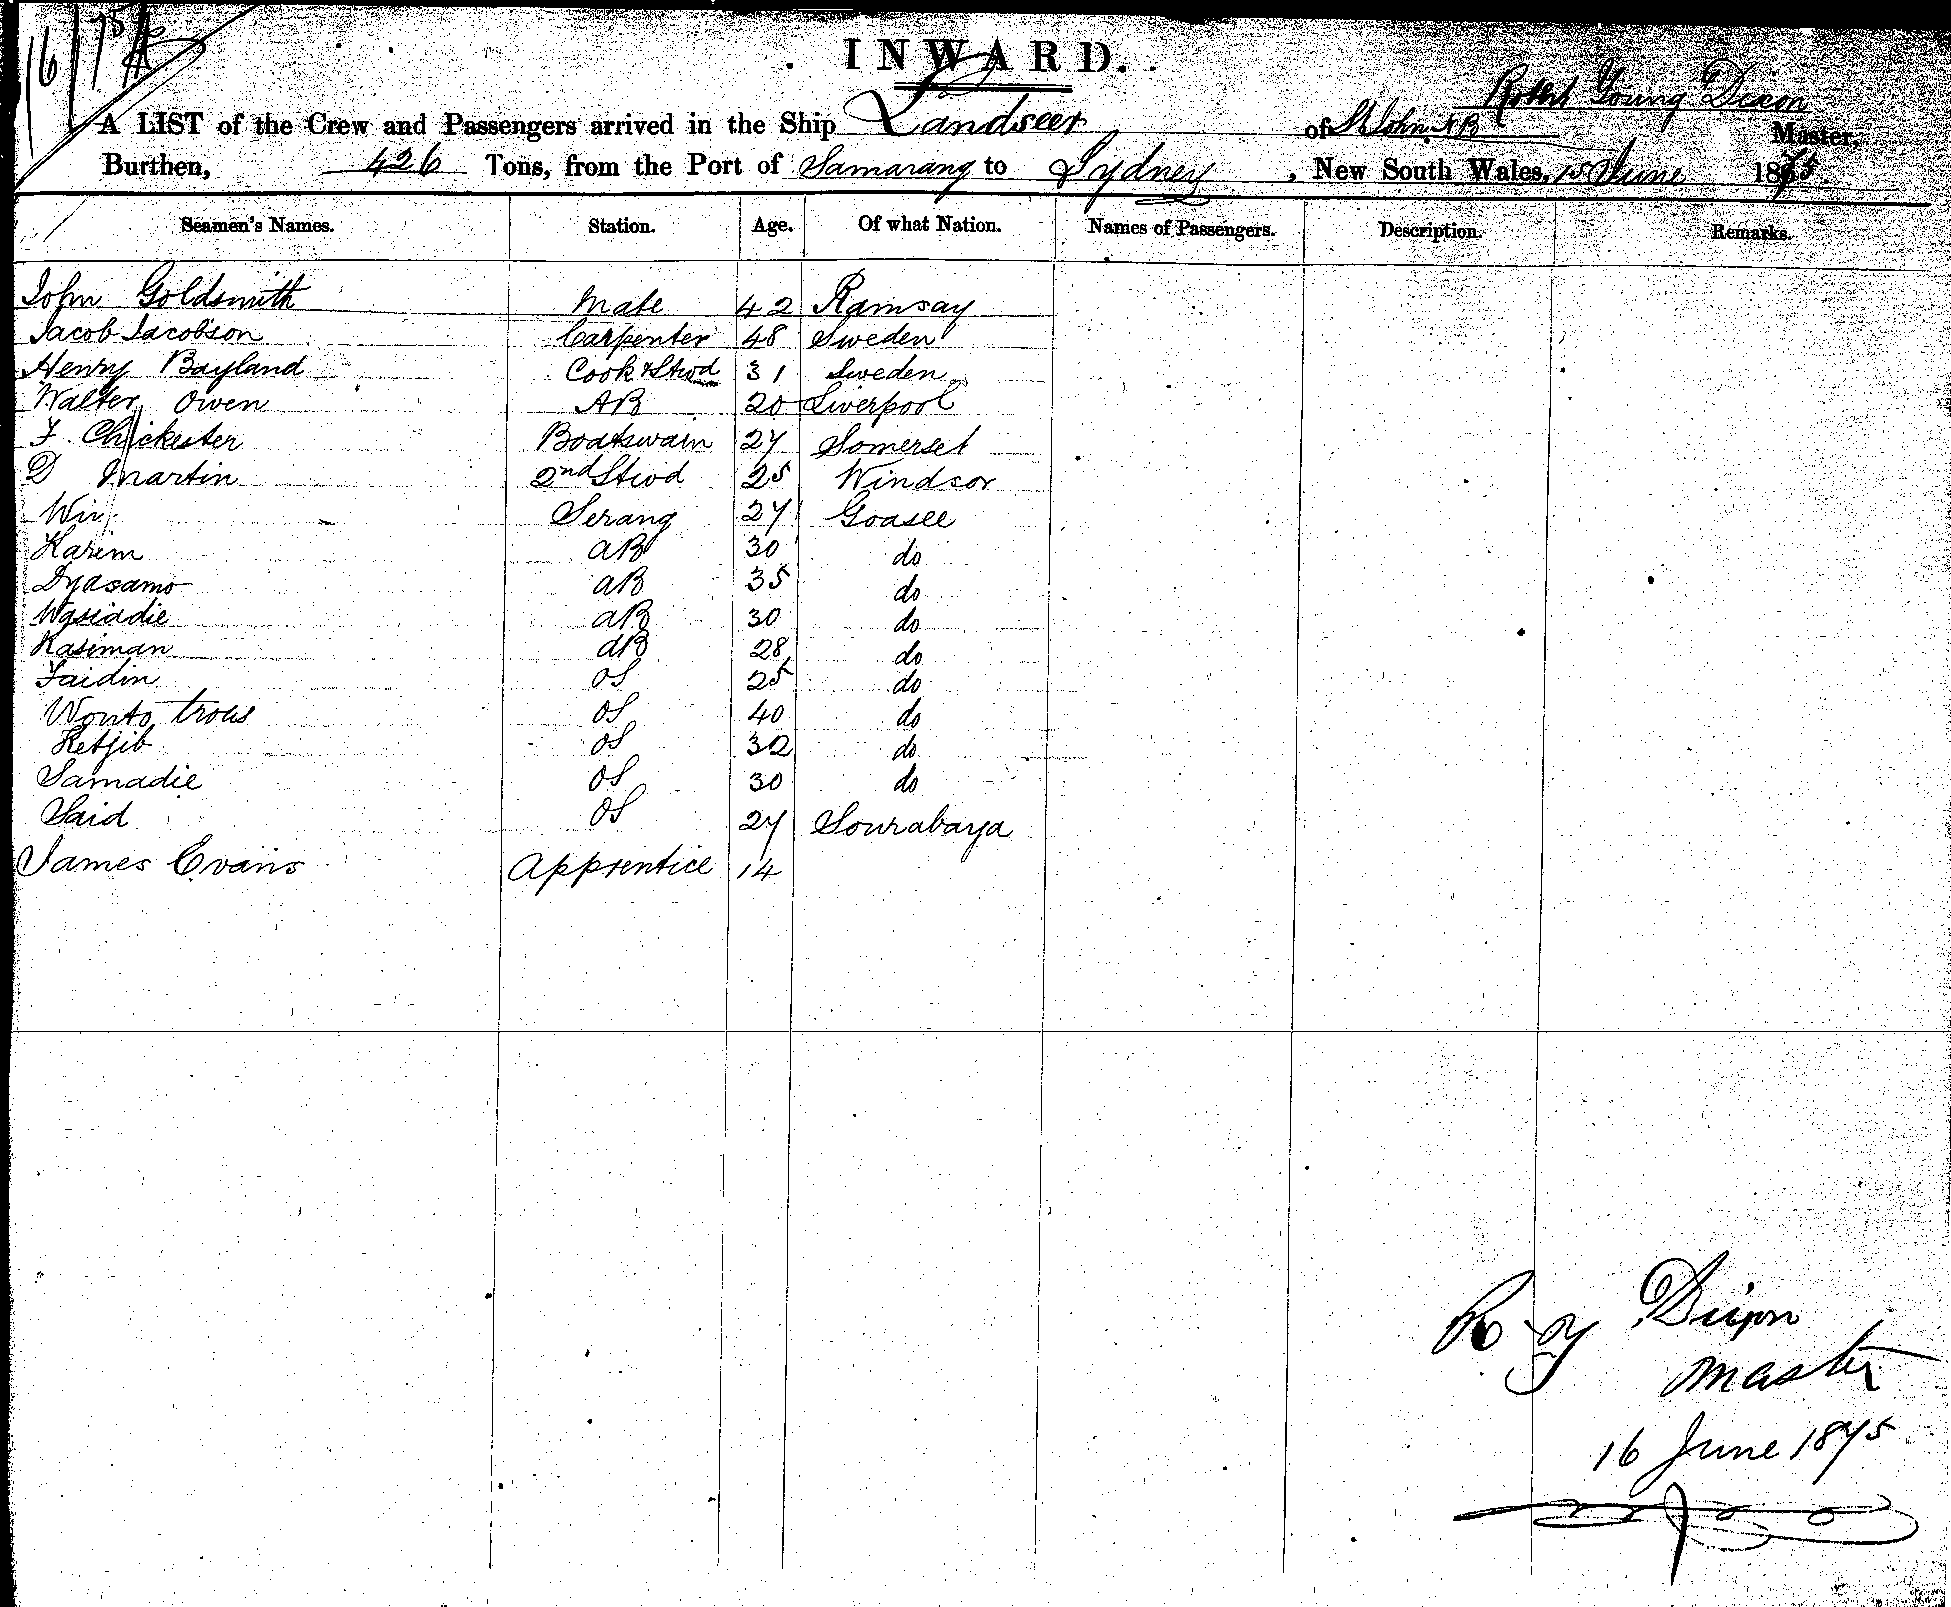 16/75
INWARD.
Robert Young Dixon
A LIST of the Crew and Passengers arrived in the Ship Landseer of St John NB Master,
Burthen, 426 Tons, from the Port of Samarang to Sydney, New South Wales, 15 June 1875
Seamen's Names. Station. Age. Of what Nation. Names of Passengers. Description. Remarks.
John Goldsmith Mate 42 Ramsay
Jacob Jacobson Carpenter 48 Sweden
Henry Bayland Cook & Stwd 31 Sweden
Walter Owen AB 20 Liverpool
F. Chickester Boatswain 27 Somerset
D Martin 2nd Stwd 25 Windsor
Win Serang 27 Goasee
Karim AB 30 do
Dyasamo AB 35 do
Wasiadie AB 30 do
Kasiman AB 28 do
Faidin OS 25 do
Wonto trous OS 40 do
Retjib OS 32 do
Samadie OS 30 do
Said OS 27 Sourabaya
James Evans Apprentice 14
R Y Dixon
Master
16 June 1875